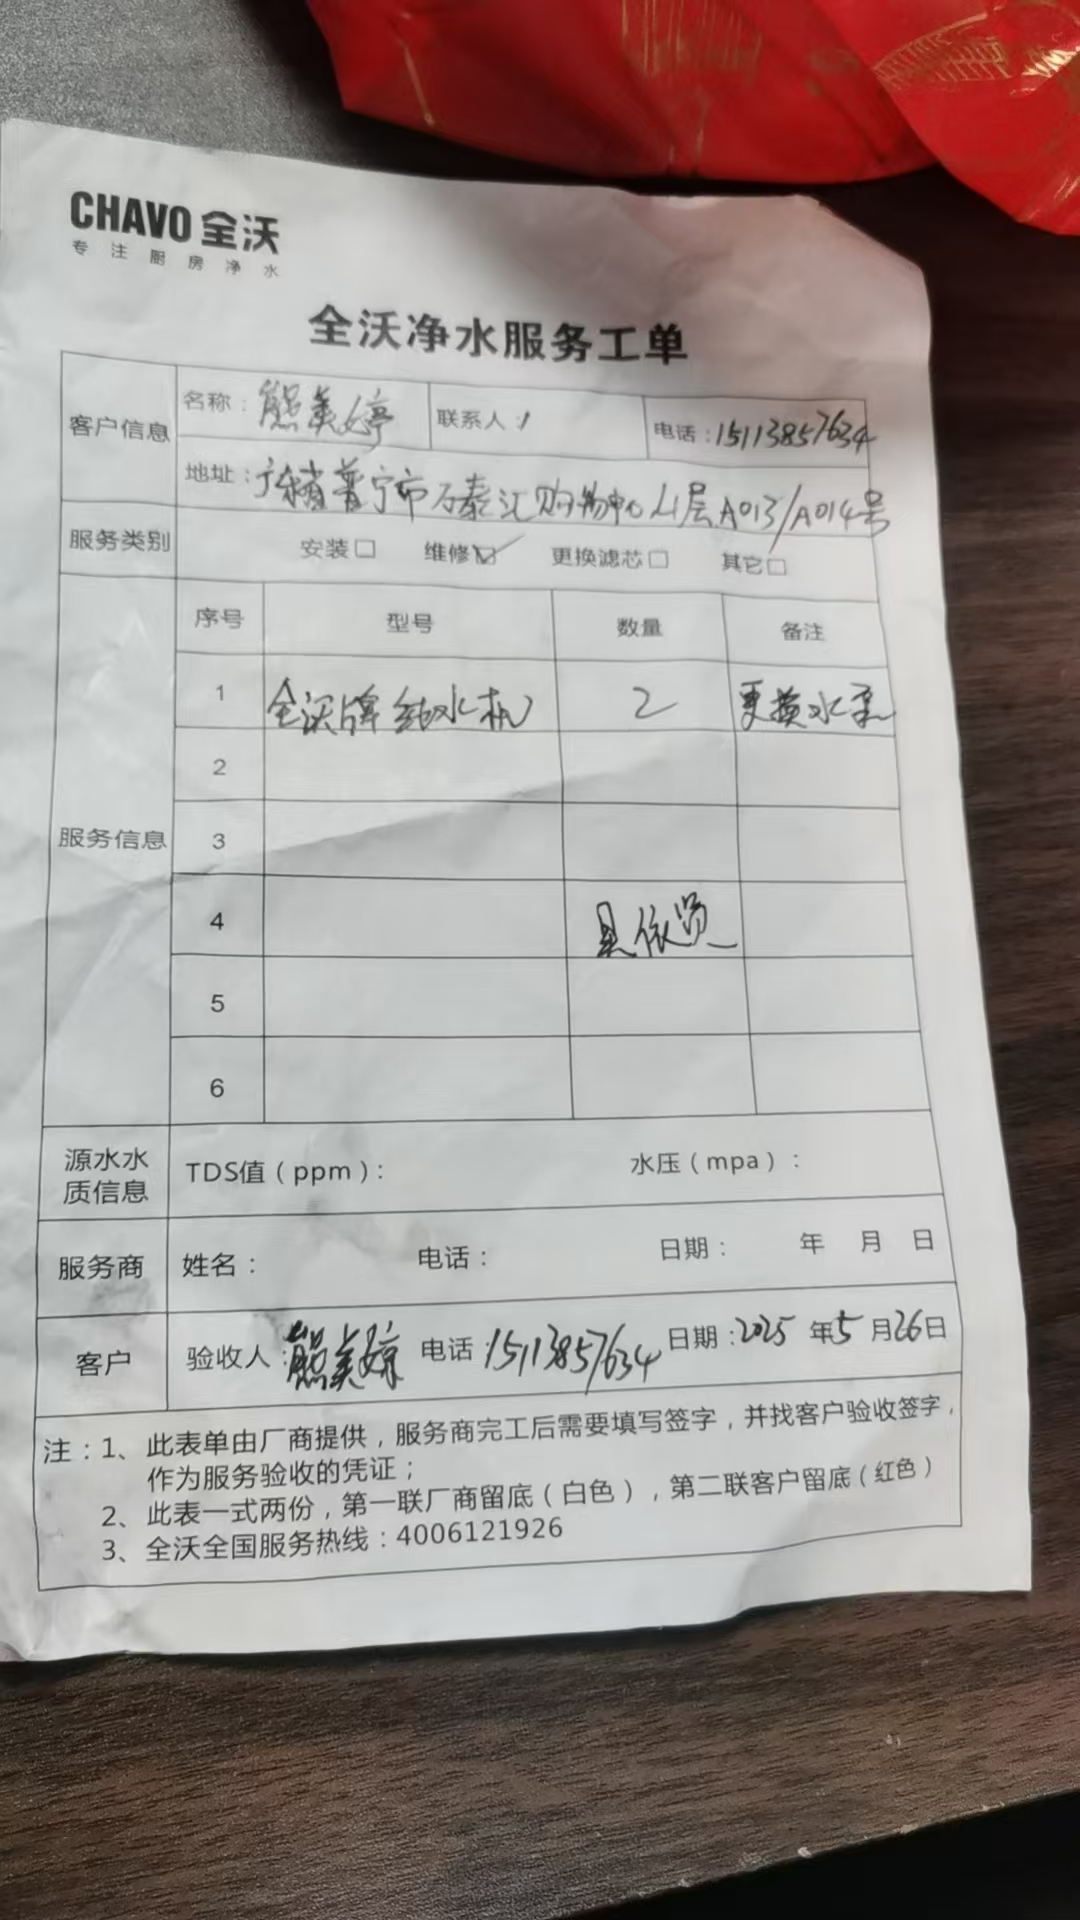 CHAVO 全沃
专注厨房净水
全沃净水服务工单
客户信息
名称：熊美婷 联系人：/ 电话：15113857634
地址：广东省普宁市万泰汇购物中心L1层A013/A014号
服务类别 安装□ 维修☑ 更换滤芯□ 其它□
服务信息
序号 型号 数量 备注
1 全沃牌纯水机 2 更换水泵
2
3
4
5
6
源水水质信息 TDS值（ppm）： 水压（mpa）：
服务商 姓名： 电话： 日期： 年 月 日
客户 验收人：熊美婷 电话：15113857634 日期：2025年5月26日
注：1、此表单由厂商提供，服务商完工后需要填写签字，并找客户验收签字，
作为服务验收的凭证；
2、此表一式两份，第一联厂商留底（白色），第二联客户留底（红色）
3、全沃全国服务热线：4006121926